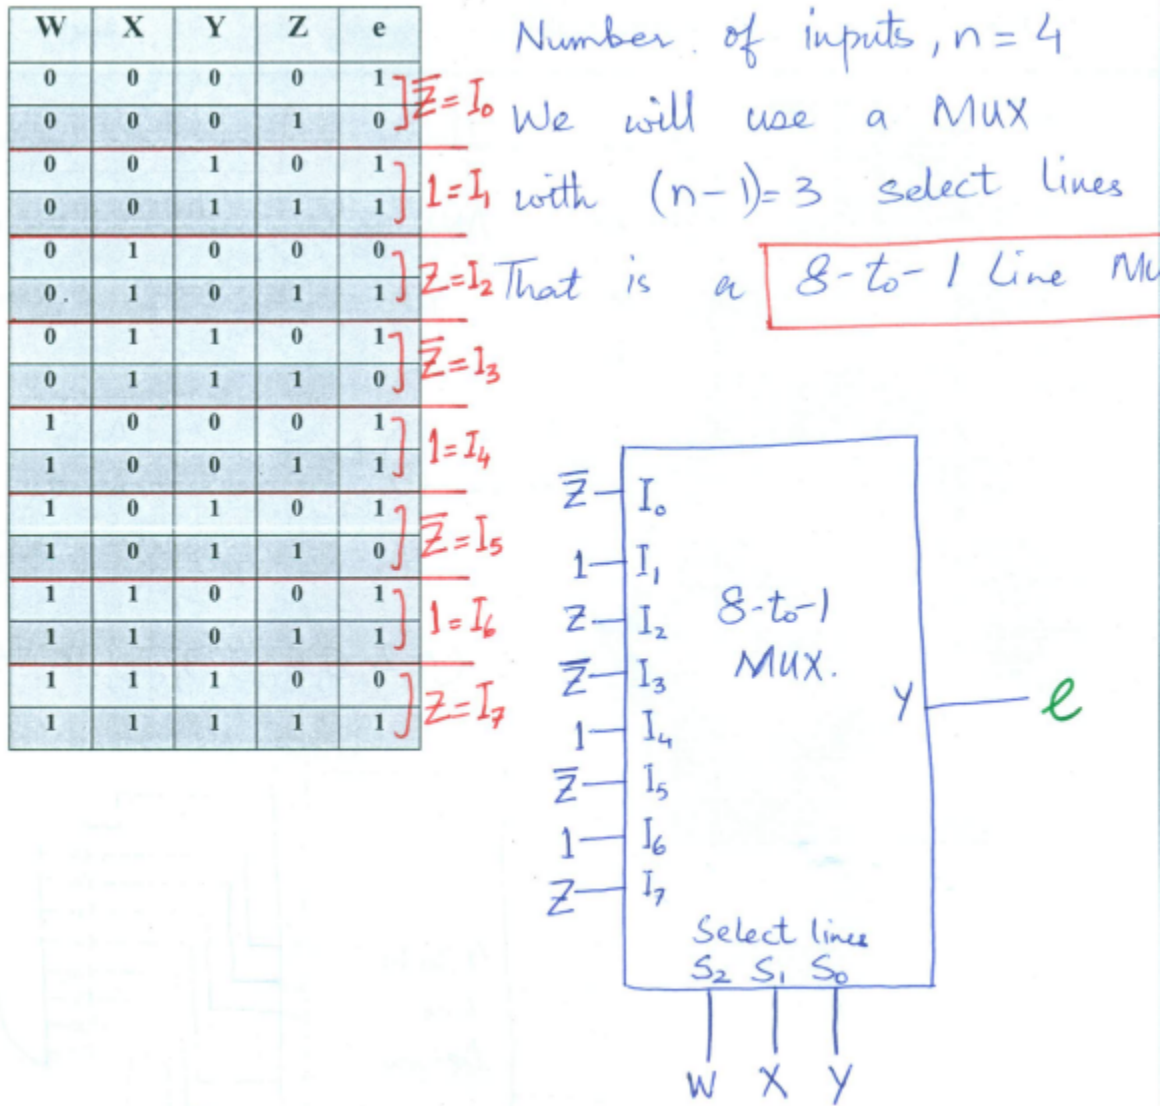 W X Y Z e
0 0 0 0 1
0 0 0 1 0
Z̅ = I₀
0 0 1 0 1
0 0 1 1 1
1 = I₁
0 1 0 0 0
0. 1 0 1 1
Z = I₂
0 1 1 0 1
0 1 1 1 0
Z̅ = I₃
1 0 0 0 1
1 0 0 1 1
1 = I₄
1 0 1 0 1
1 0 1 1 0
Z̅ = I₅
1 1 0 0 1
1 1 0 1 1
1 = I₆
1 1 1 0 0
1 1 1 1 1
Z = I₇
Number of inputs, n = 4
We will use a MUX
with (n-1)=3 select lines
That is a 8-to-1 Line Mu
Z̅ I₀
1 I₁
Z I₂
Z̅ I₃
1 I₄
Z̅ I₅
1 I₆
Z I₇
8-to-1
MUX.
Y e
Select lines
S₂ S₁ S₀
W X Y